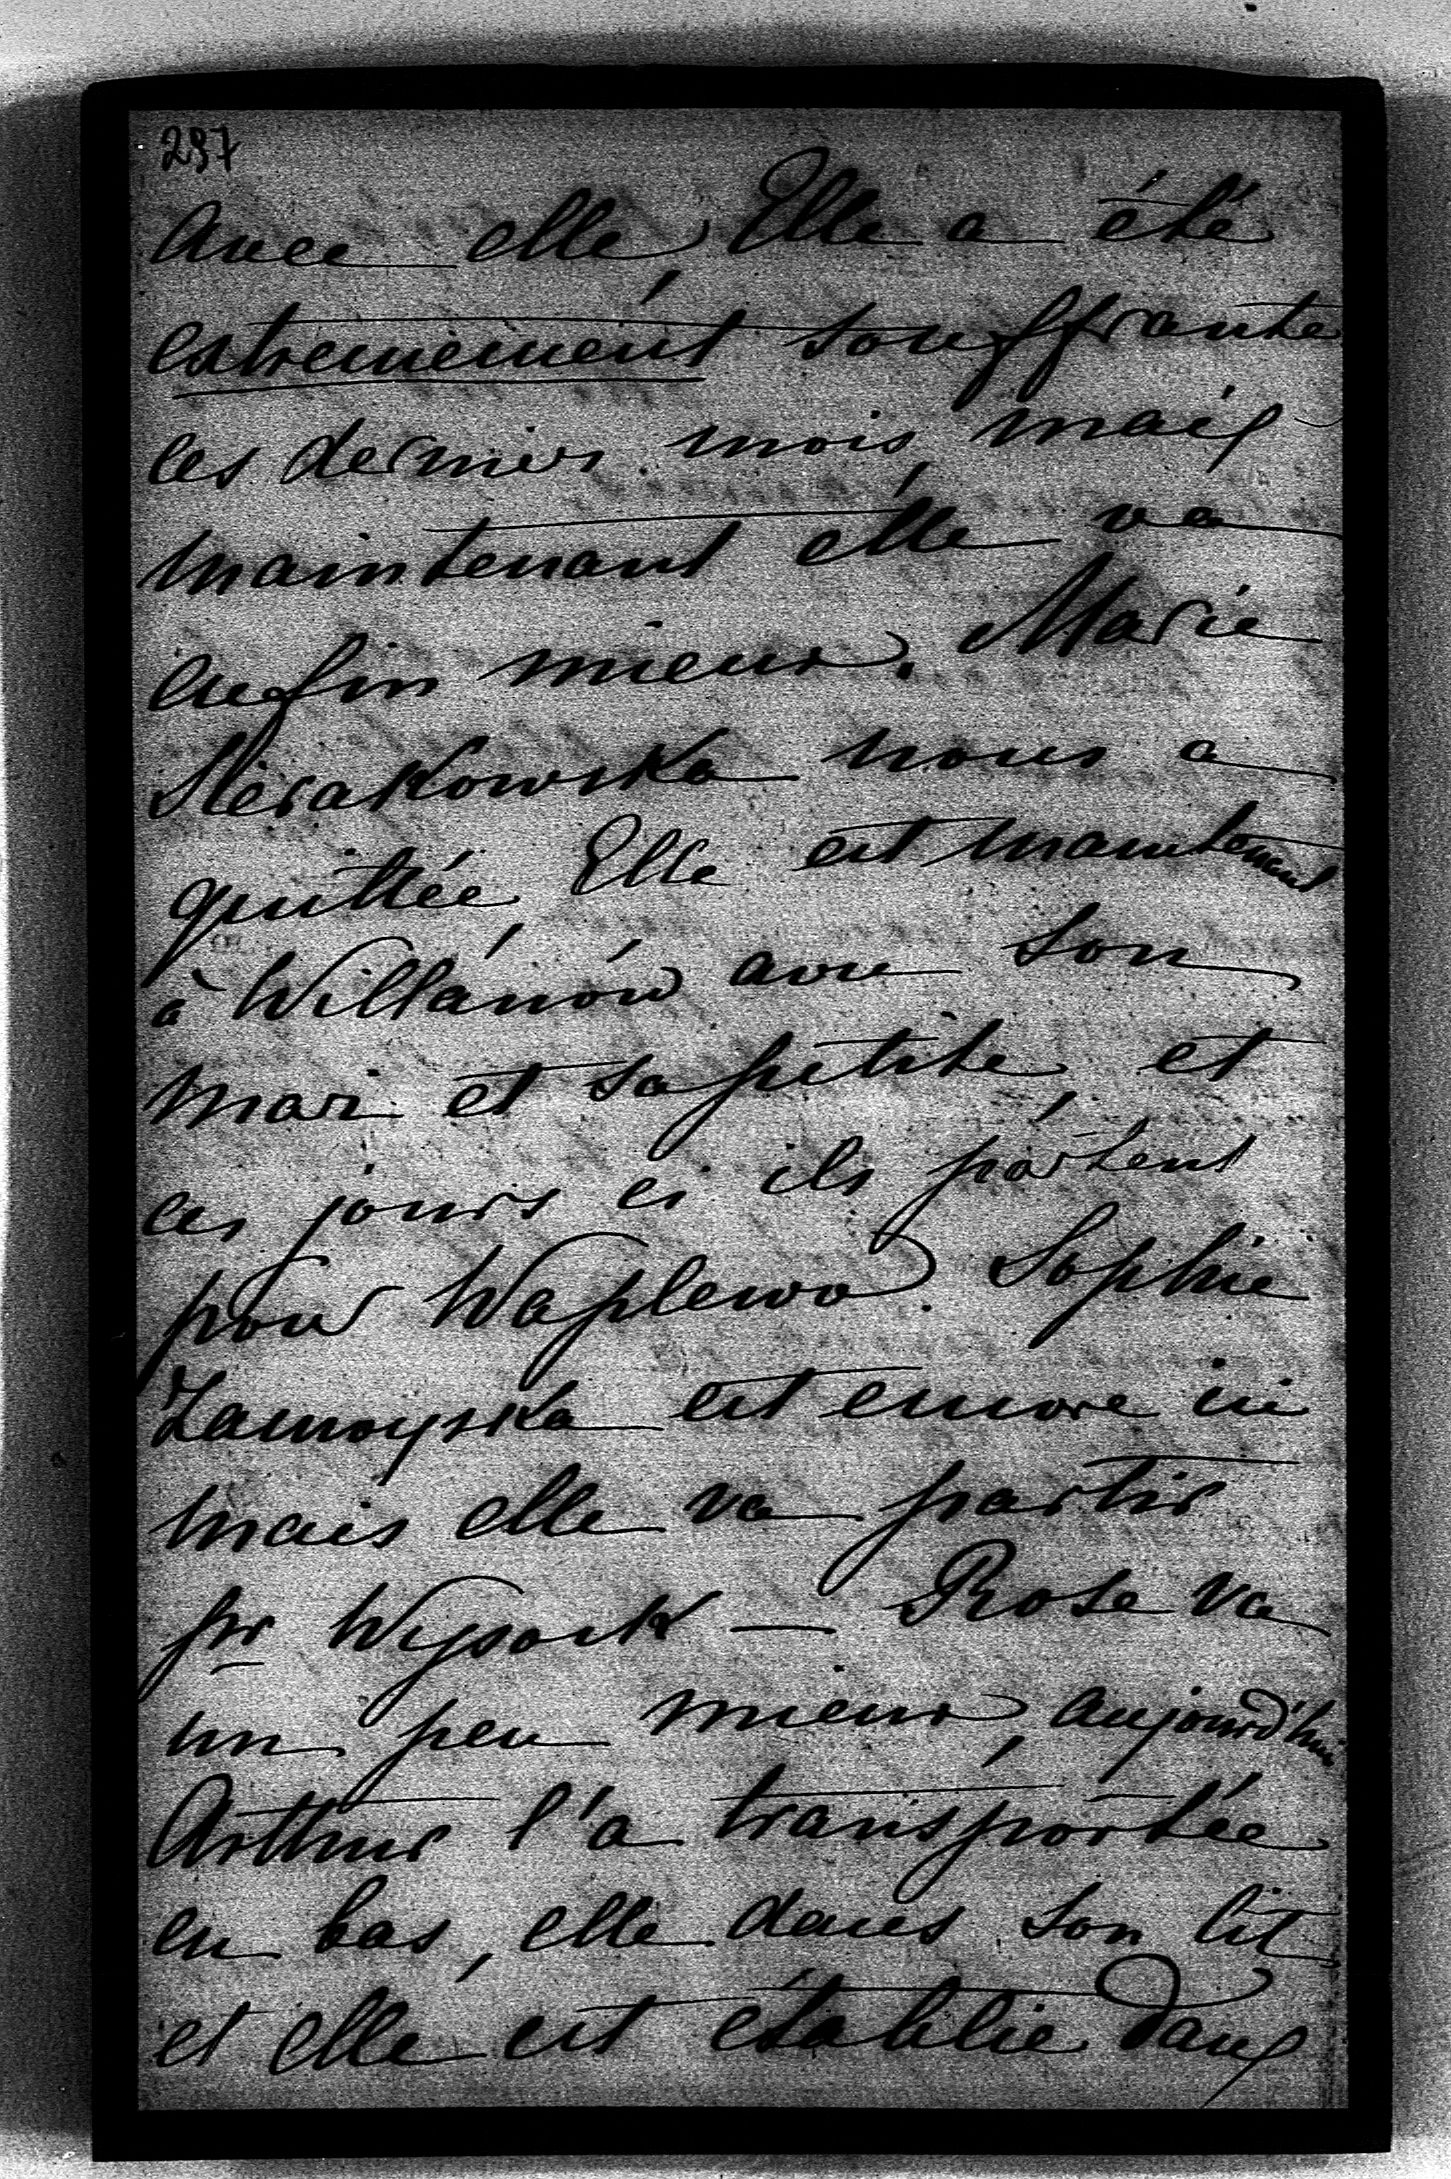 297
Avec elle, Elle a été
extremement souffrante
les dernier mois, mais
maintenant elle va
enfin mieux. Marie
Sierakowska nous a
quittée, Elle est maintenant
à Willanów avec son
mari et sa petite, et
ces jours ci ils partent
pour Waplewo. Sophie
Zamoyska est encore ici
mais elle va partir
pr Wysock — Rose va
un peu mieux, aujourd'hui
Arthur l'a transportée
en bas, elle dans son lit
et elle est établie dans